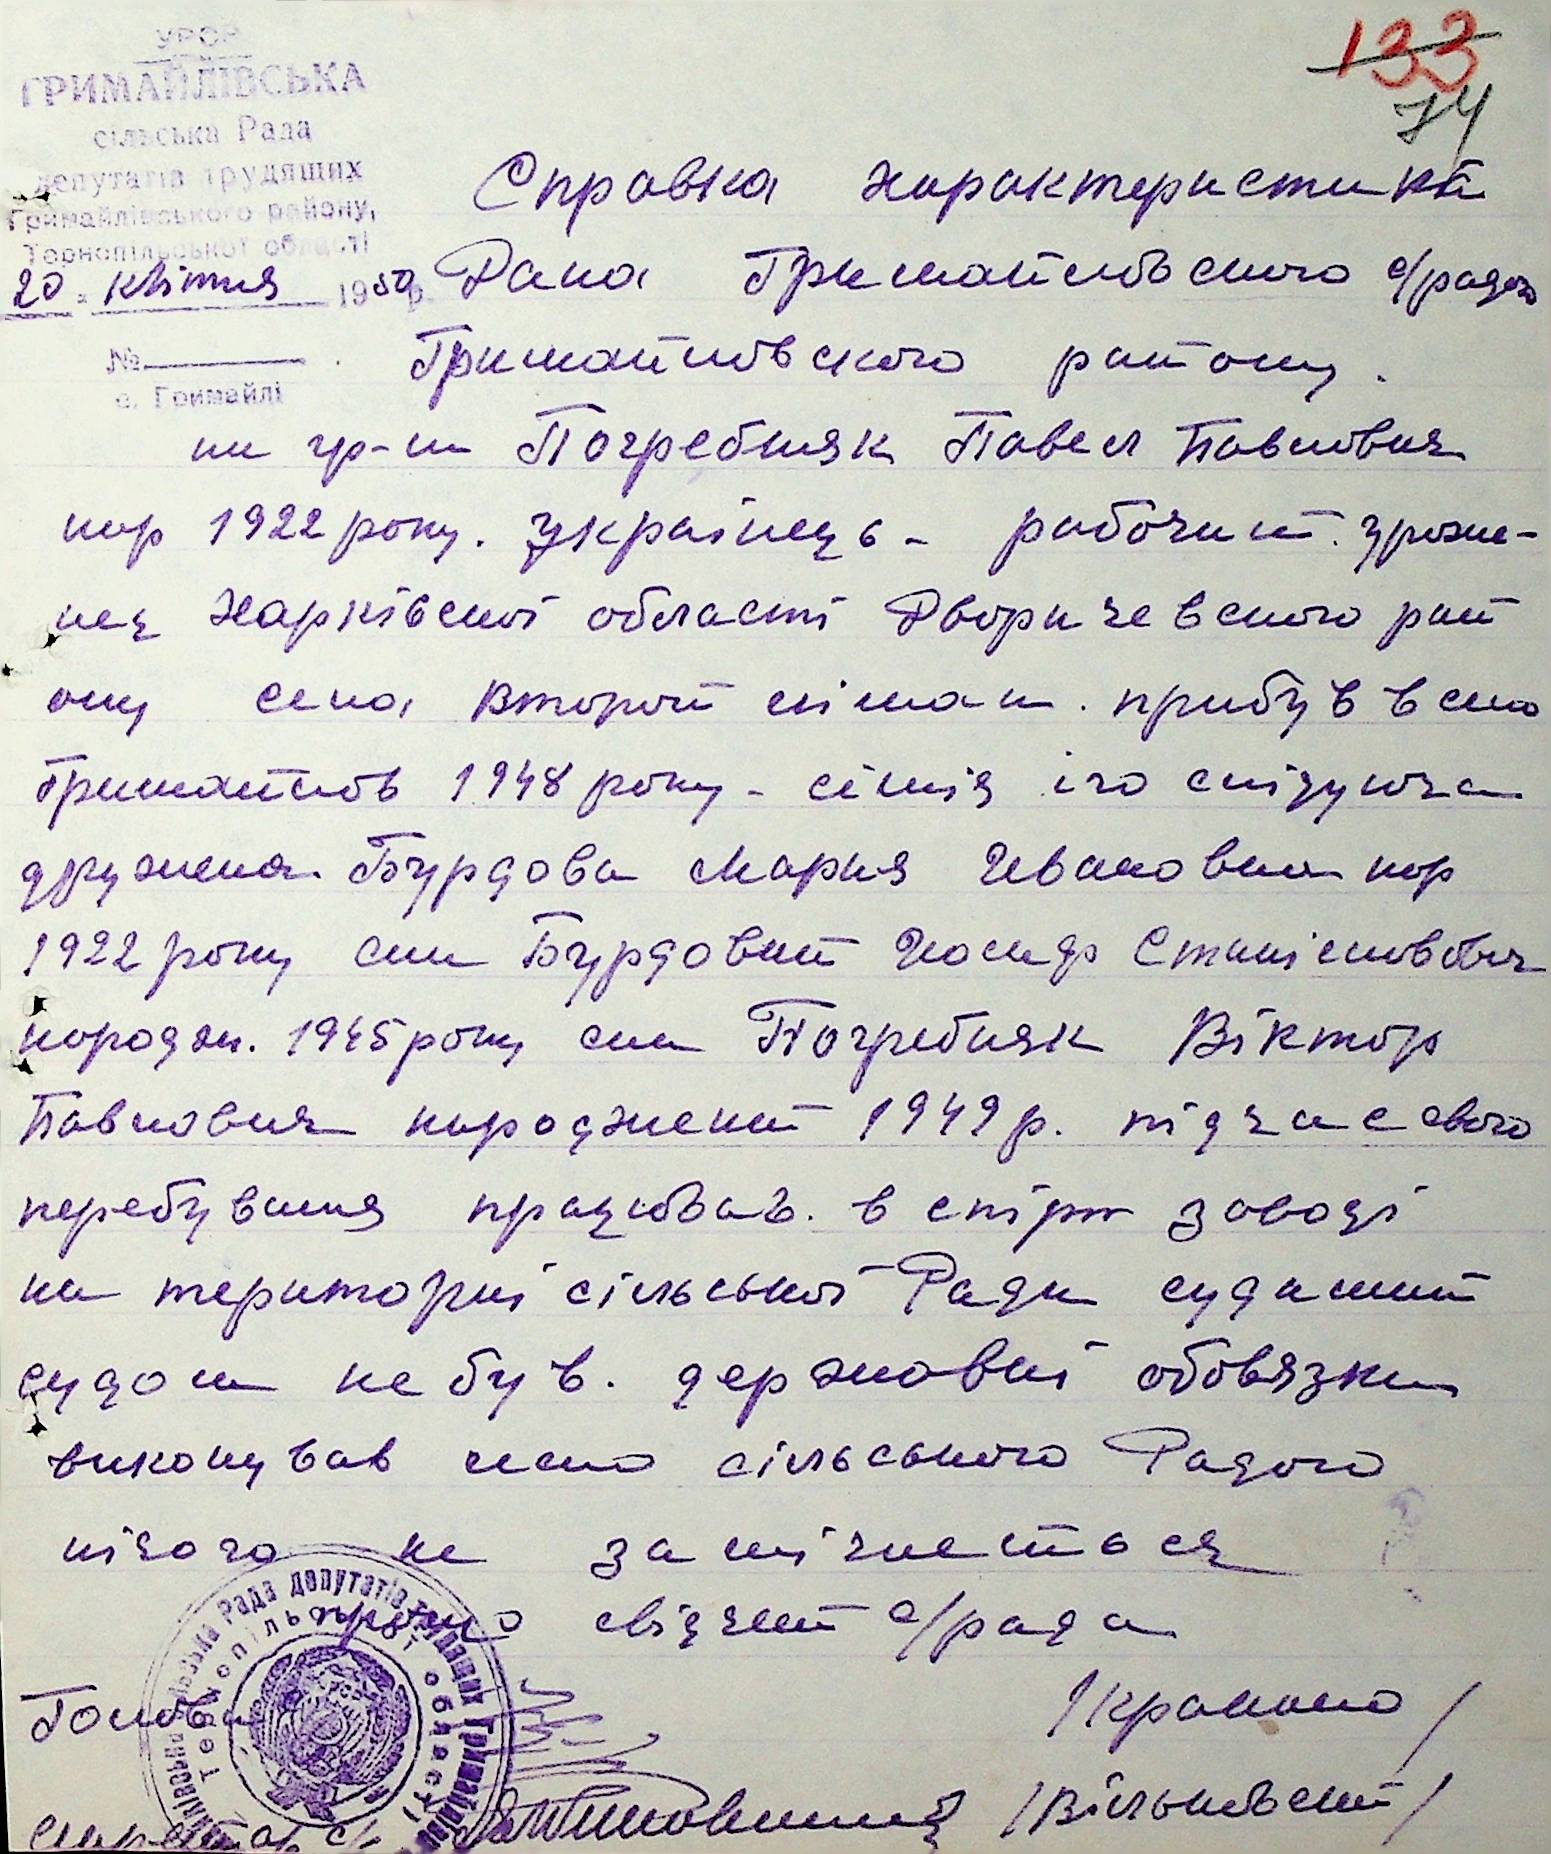 133
74
УРСР
ГРИМАЙЛІВСЬКА
сільська Рада
депутатів трудящих
Гримайлівського району,
Тернопільської області
20 квітня 1950 р.
№
с. Гримайлі
Справка характеристика
Дана Гримайловского с/радою
Гримайловского району.
на гр-на Погребняк Павел Павлович
нар 1922 року. українець - рабочий. уроже-
нец Харківскої області Дворичевского рай
ону села Второй. прибув в село
Гримайлов 1948 року - сімія іго слідуюча
дружена Бурдова Мария Ивановна нар
1922 року син Бурдовий Иосиф Станіславович
народж. 1945 року син Погребняк Віктор
Павлович народжений 1949 р. підчас свого
перебування працював. в спірт заводі
на території сільської Ради судимий
судом не був. державні обовязки
виконував чесно сільського Радого
нічого не замічиється
с/рада
Голова /Кравчено/
секретар с/ /Вільковский/
Рада депутатів трудящих
Тернопільської області